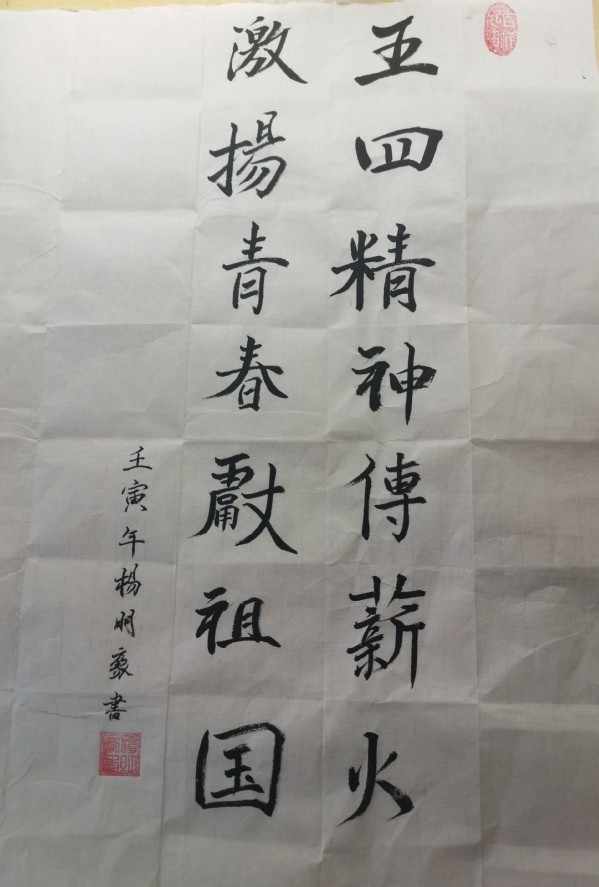 五四精神傳薪火
激揚青春獻祖国
壬寅年楊明豪書